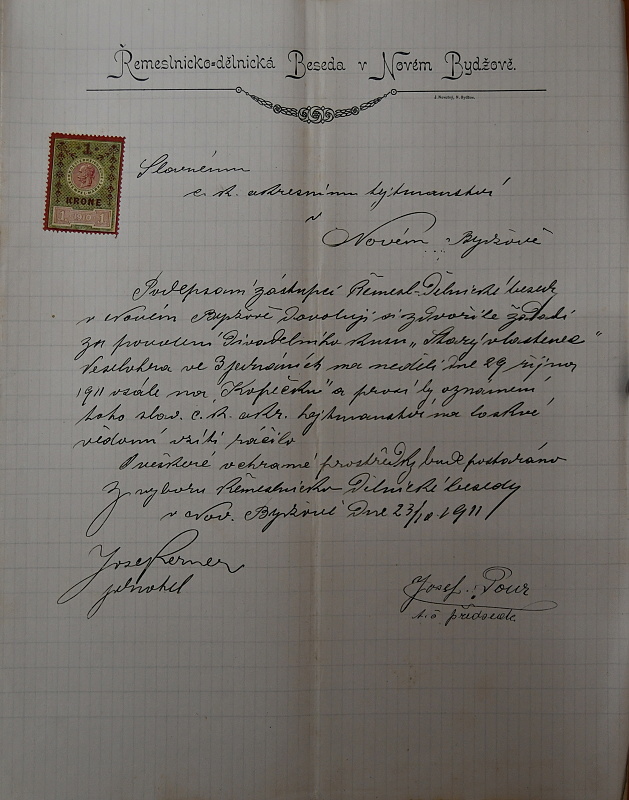 Řemeslnicko-dělnická Beseda v Novém Bydžově.
J. Novotný, N. Bydžov.
1
KRONE
1 1910 1
Slavnému
c. k. okresnímu hejtmanství
v
Novém Bydžově
Podepsaní zástupci Řemesl-Dělnické besedy
v Novém Bydžově dovolují si zdvořile žádati
za povolení divadelního kusu „Starý vlastenec"
Veselohra ve 3 jednáních na neděli dne 29 října
1911 v sále na „Kopečku" a prosí by oznámení
toho slav. c. k. okr. hejtmanství na laskavé
vědomí vzíti ráčilo
O veškeré ochranné prostředky bude postaráno
Z výboru Řemeslnicko Dělnické besedy
v Nov. Bydžově Dne 23/10 1911
Josef
jednatel
Josef Pour
t. č. předseda